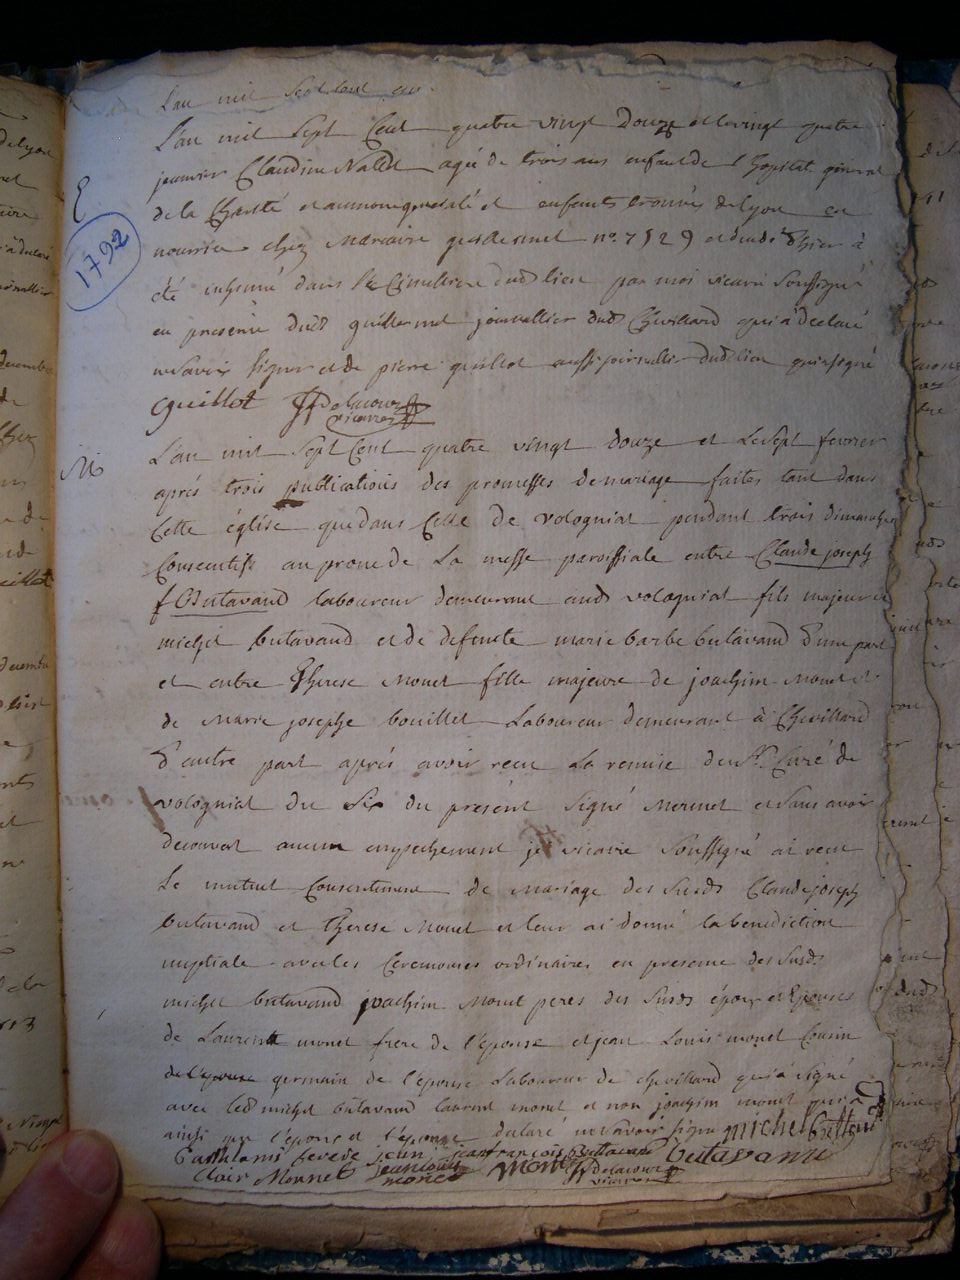 L'an mil Sept Cent
L'an mil Sept Cent quatre vingt Douze et le vingt quatre
E
janvier Claudine Nallet agée de trois ans enfant de l'hopital général
de la Charité et aumone generale et enfants trouvés de Lyon en
1792
nourrice chez guillermet no. 7529 et hier à
été inhumé dans le Cimettiere dud lieu par moi vicaire Soussigné
en presence dud guillermet journallier dud Chevillard qui a declaré
ne savoir signer et de pierre guillot aussi journallier dud lieu qui a signé
guillot Delacour
vicaire
M
L'an mil Sept Cent quatre vingt douze et Le sept fevrier
aprés trois publications des promesses de mariage faites tant dans
Cette église que dans Celle de vologniat pendant trois dimanches
Consecutifs au prone de La messe paroissiale entre Claude joseph
f butavand laboureur demeurant aud vologniat fils majeur de
michel butavand et de defunte marie barbe butavand d'une part
et entre Therese Monet fille majeure de joachim Monet et
de Marie josephe bouillet Laboureur demeurant à Chevillard
d'autre part aprés avoir recu La remise du Sr. Curé de
vologniat du Six du present Signé Mermet et sans avoir
decouvert aucun empechement je vicaire Soussigné ai recu
Le mutuel Consentement de Mariage des Susds Claude joseph
butavand et therese Monet et leur ai donné la benediction
nuptiale avec les Ceremonies ordinaires en presence des Susds
michel butavand joachim Monet peres des Susds époux et Epouse
de Laurent monet frere de l'epouse et jean Louis monet Cousin
de l'epouse germain de l'epouse Laboureur de chevillard qui a signé
avec led michel butavand laurent monet et non joachim monet qui a
ainsi que l'epoux et l'epouse declaré ne savoir signer michel buttavand
jean françois Buttavand butavand
Clair Monnet jean louis monet Monet Delacour
vicaire